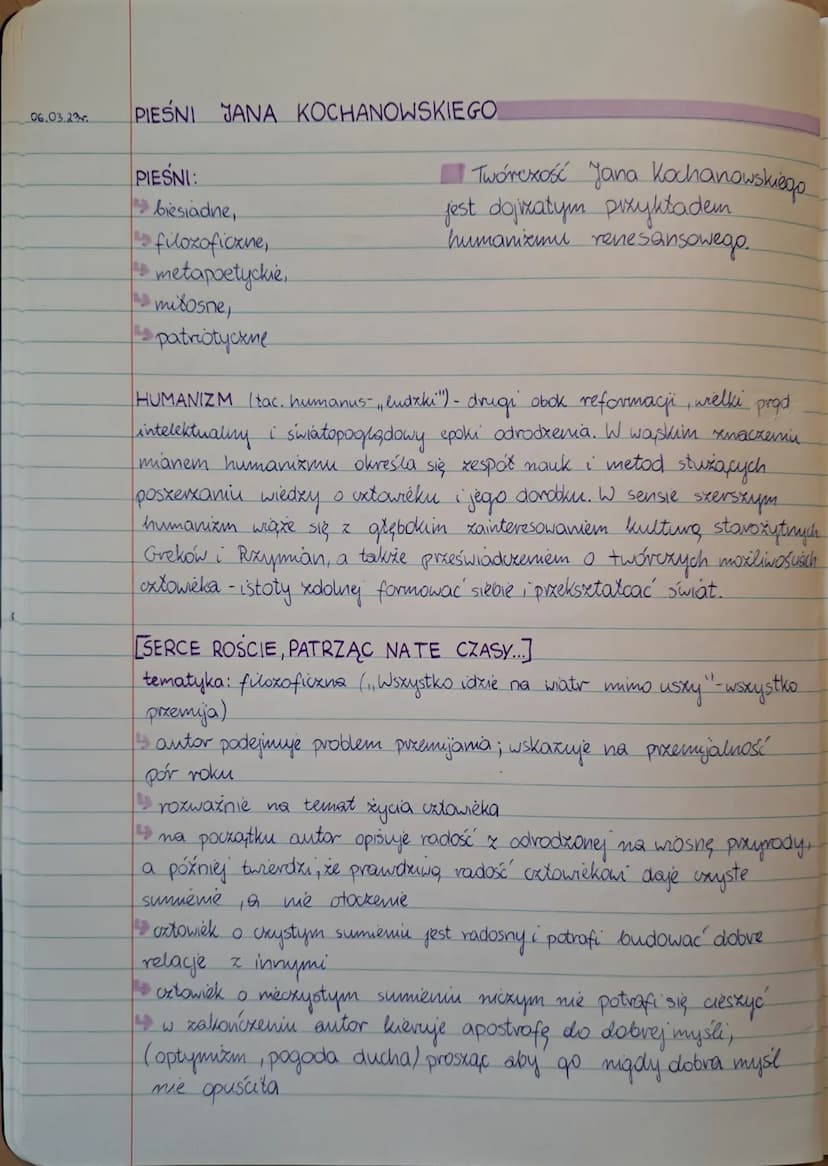 06.03.23r.
PIEŚNI JANA KOCHANOWSKIEGO
PIEŚNI:
biesiadne,
filozoficzne,
metapoetyckie,
miłosne,
patriotyczne
Twórczość Jana Kochanowskiego
jest dojrzałym przykładem
humanizmu renesansowego.
HUMANIZM (łac. humanus - „ludzki") - drugi obok reformacji, wielki prąd
intelektualny i światopoglądowy epoki odrodzenia. W wąskim znaczeniu
mianem humanizmu określa się zespół nauk i metod służących
poszerzaniu wiedzy o człowieku i jego dorobku. W sensie szerszym
humanizm wiąże się z głębokim zainteresowaniem kulturą starożytnych
Greków i Rzymian, a także przeświadczeniem o twórczych możliwościach
człowieka - istoty zdolnej formować siebie i przekształcać świat.
[SERCE ROŚCIE, PATRZĄC NA TE CZASY...]
tematyka: filozoficzna („Wszystko idzie na wiatr mimo uszy" - wszystko
przemija)
autor podejmuje problem przemijania; wskazuje na przemijalność
pór roku
rozważnie na temat życia człowieka
na początku autor opisuje radość z odrodzonej na wiosnę przyrody,
a później twierdzi, że prawdziwą radość człowiekowi daje czyste
sumienie, a nie otoczenie
człowiek o czystym sumieniu jest radosny i potrafi budować dobre
relacje z innymi
człowiek o nieczystym sumieniu niczym nie potrafi się cieszyć
w zakończeniu autor kieruje apostrofę do dobrej myśli,
(optymizm, pogoda ducha) prosząc aby go nigdy dobra myśl
nie opuściła